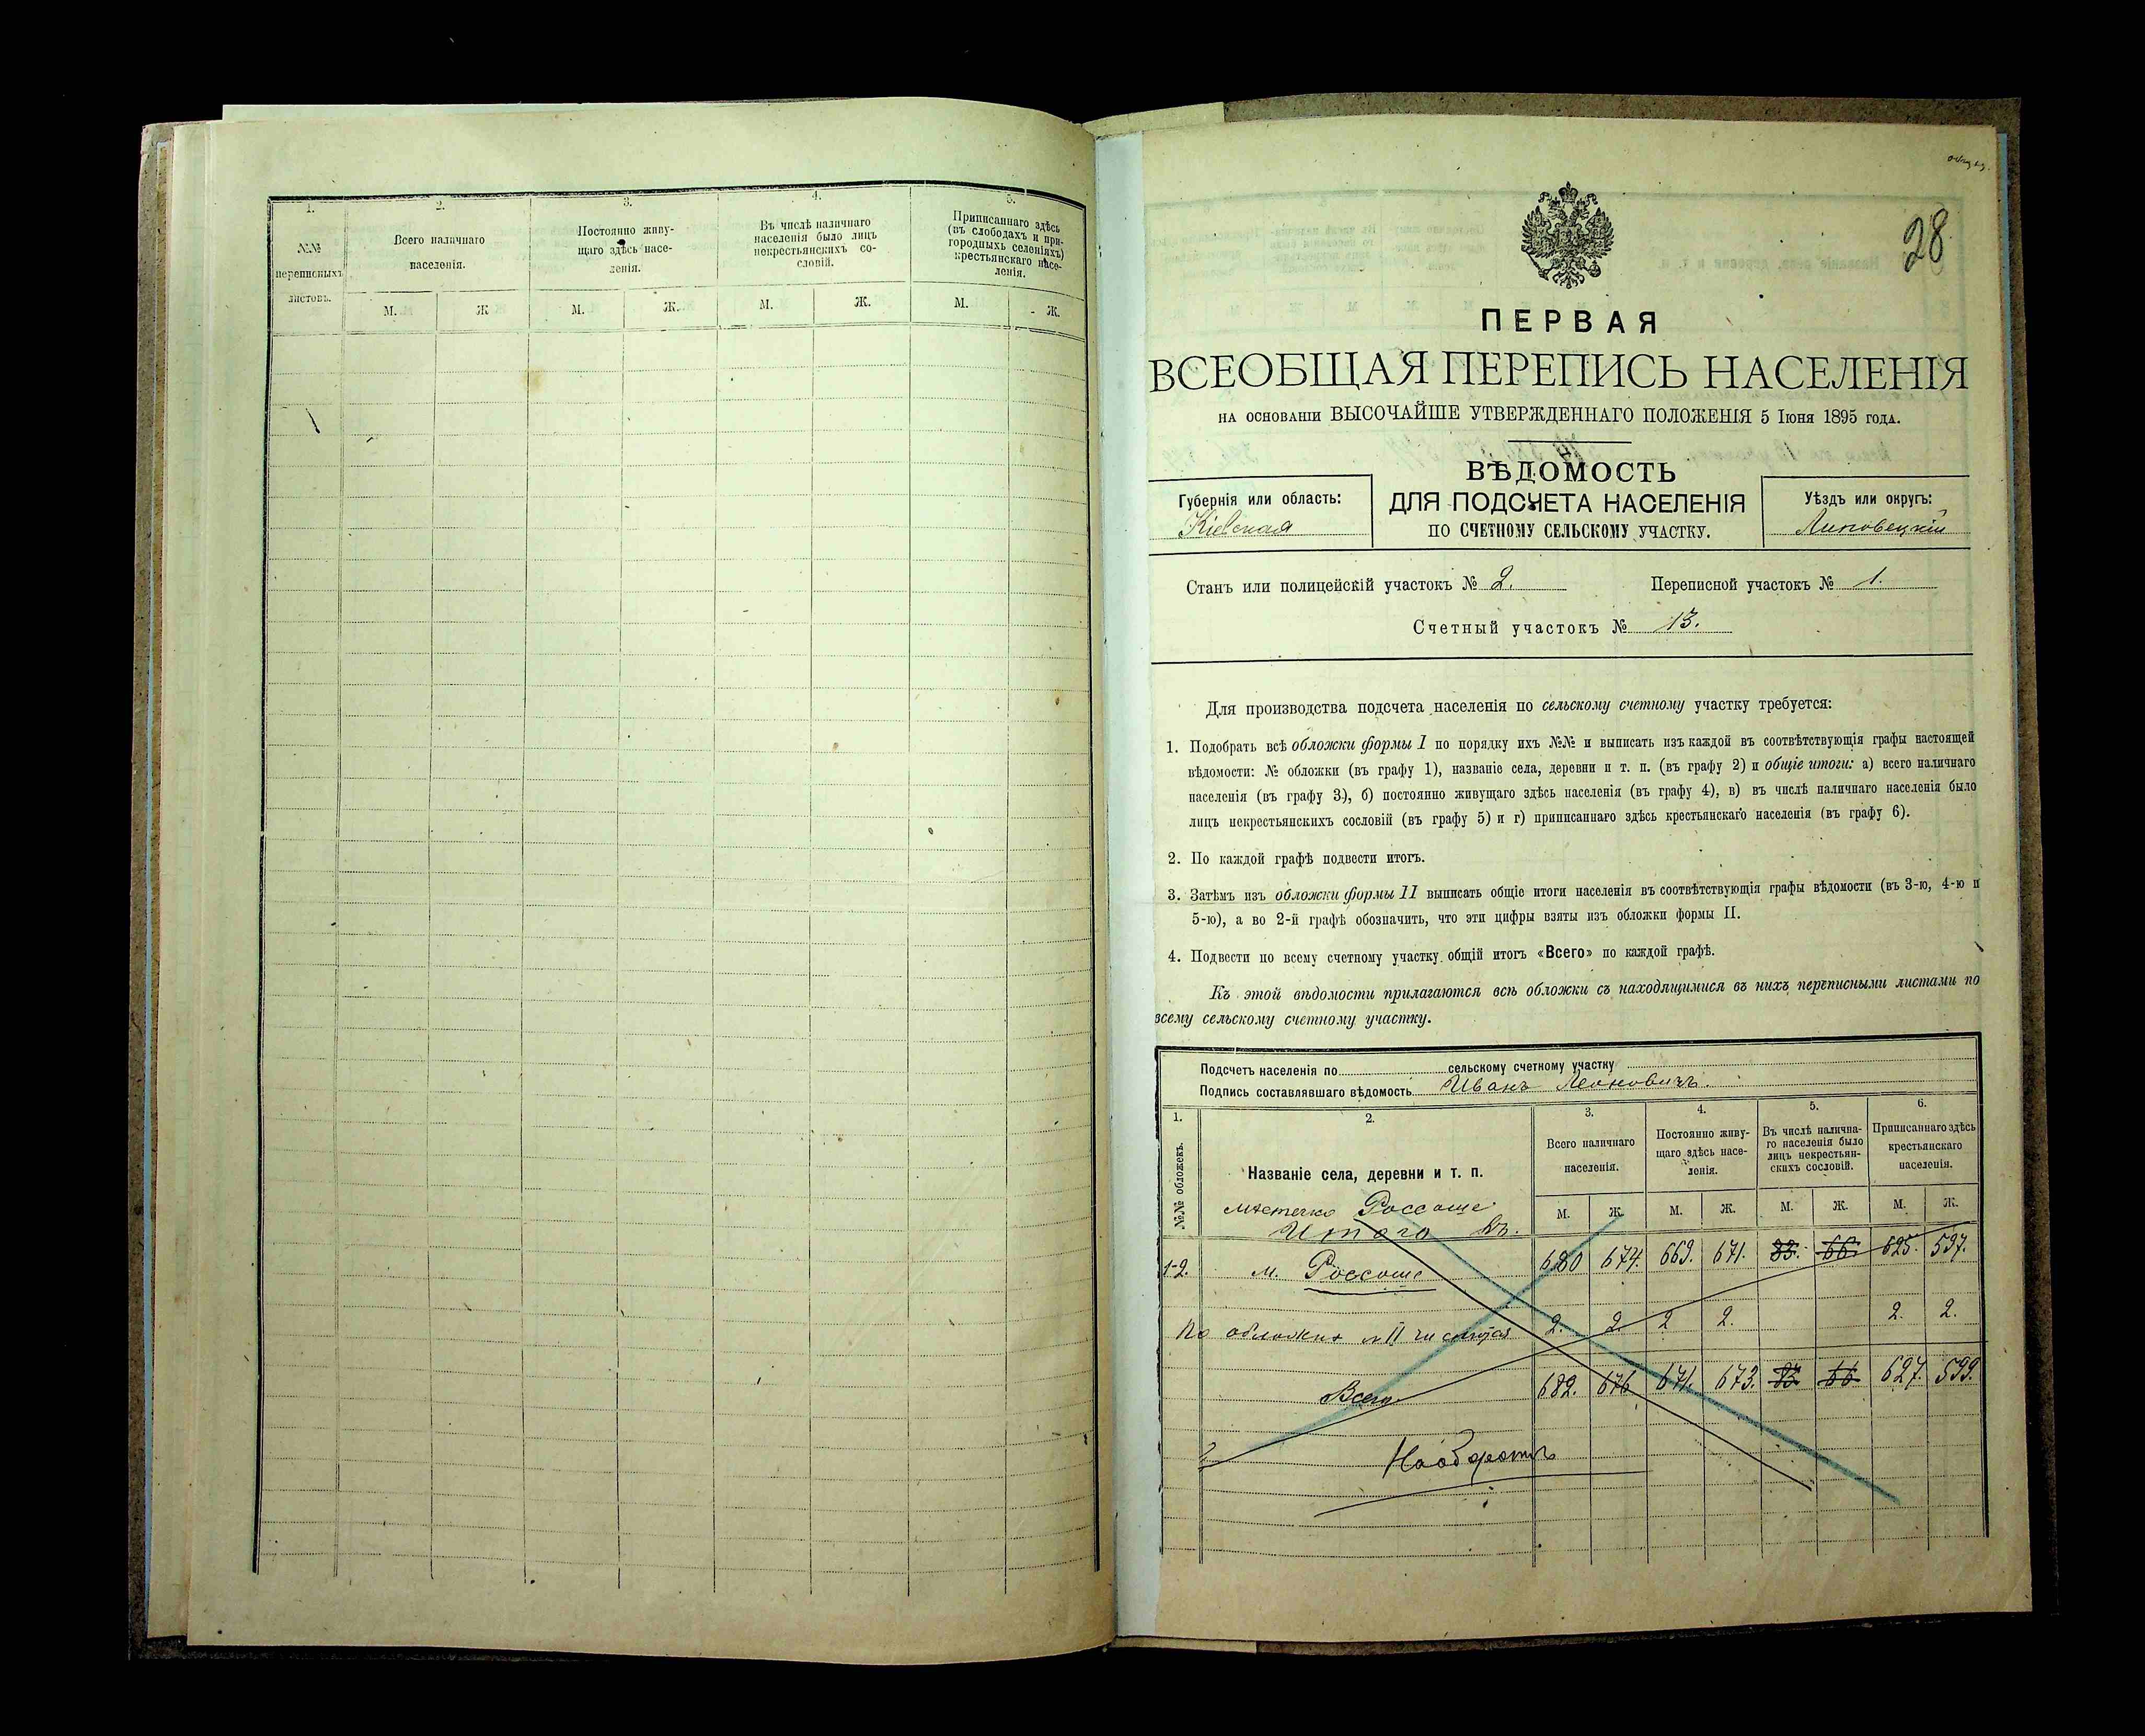 1.
2.
3.
4.
5.
№№
переписныхъ
листовъ.
Всего наличнаго
населенія.
Постоянно живу-
щаго здѣсь насе-
ленія.
Въ числѣ наличнаго
населенія было лицъ
некрестьянскихъ со-
словій.
Приписаннаго здѣсь
(въ слободахъ и при-
городныхъ селеніяхъ)
крестьянскаго насе-
ленія.
М. Ж М. Ж. М. Ж. М. Ж.
28
ПЕРВАЯ
ВСЕОБЩАЯ ПЕРЕПИСЬ НАСЕЛЕНІЯ
НА ОСНОВАНІИ ВЫСОЧАЙШЕ УТВЕРЖДЕННАГО ПОЛОЖЕНІЯ 5 Іюня 1895 года.
ВѢДОМОСТЬ
ДЛЯ ПОДСЧЕТА НАСЕЛЕНІЯ
ПО СЧЕТНОМУ СЕЛЬСКОМУ УЧАСТКУ.
Губернія или область:
Кіевская
Уѣздъ или округъ:
Липовецкій
Станъ или полицейскій участокъ № 2. Переписной участокъ № 1.
Счетный участокъ № 13.
Для производства подсчета населенія по сельскому счетному участку требуется:
1. Подобрать всѣ обложки формы I по порядку ихъ №№ и выписать изъ каждой въ соотвѣтствующія графы настоящей
вѣдомости: № обложки (въ графу 1), названіе села, деревни и т. п. (въ графу 2) и общіе итоги: а) всего наличнаго
населенія (въ графу 3), б) постоянно живущаго здѣсь населенія (въ графу 4), в) въ числѣ наличнаго населенія было
лицъ некрестьянскихъ сословій (въ графу 5) и г) приписаннаго здѣсь крестьянскаго населенія (въ графу 6).
2. По каждой графѣ подвести итогъ.
3. Затѣмъ изъ обложки формы II выписать общіе итоги населенія въ соотвѣтствующія графы вѣдомости (въ 3-ю, 4-ю и
5-ю), а во 2-й графѣ обозначить, что эти цифры взяты изъ обложки формы II.
4. Подвести по всему счетному участку общій итогъ «Всего» по каждой графѣ.
Къ этой вѣдомости прилагаются всѣ обложки съ находящимися въ нихъ переписными листами по
всему сельскому счетному участку.
Подсчетъ населенія по сельскому счетному участку
Подпись составлявшаго вѣдомость Иванъ Леоновичъ.
1.
2.
3.
4.
5.
6.
№№ обложекъ.
Названіе села, деревни и т. п.
Всего наличнаго
населенія.
Постоянно живу-
щаго здѣсь насе-
ленія.
Въ числѣ налична-
го населенія было
лицъ некрестьян-
скихъ сословій.
Приписаннаго здѣсь
крестьянскаго
населенія.
М. Ж. М. Ж. М. Ж. М. Ж.
мѣстечко Россоше
Итого
1-2. м. Россоше 680 674. 669. 671. 83. 66. 625. 597.
По обложкѣ II 2. 2. 2 2. 2. 2.
Всего 682. 676 671. 673. 83. 66. 627. 599.
Наоборотъ